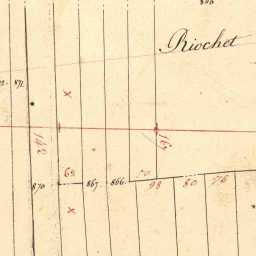 Riochet
871.
142
165
69
70
870
867.
866.
98
80
76